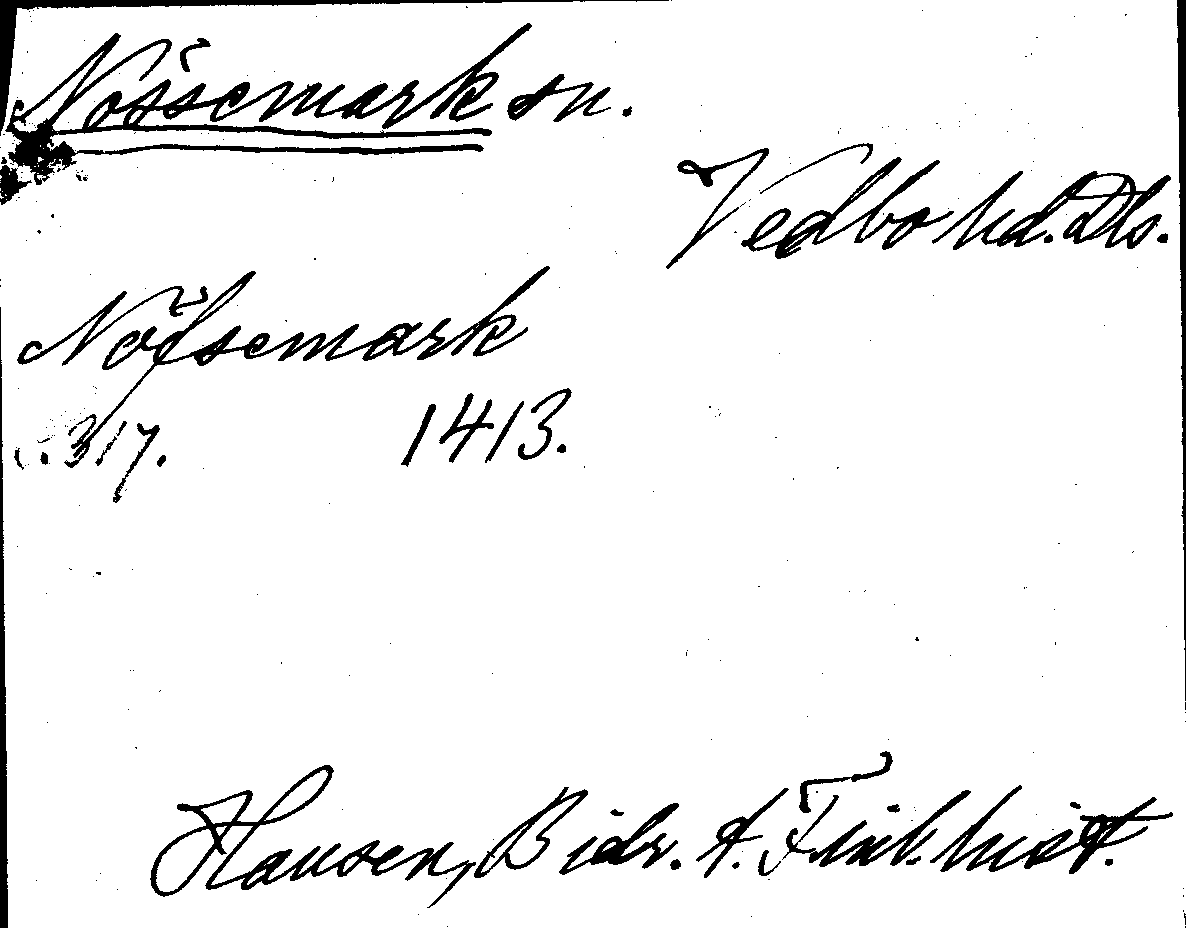 Nössemark sn.
Vedbo hd. Dls.
Nösſemark
s. 317. 1413.
Hausen, Bidr. t. Finl. hist.